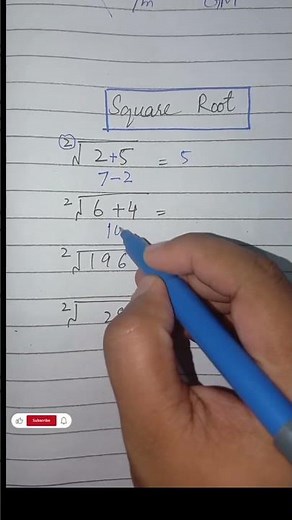 Square Root
2√2+5 = 5
7-2
2√6+4 =
10
2√196
2√
Subscribe